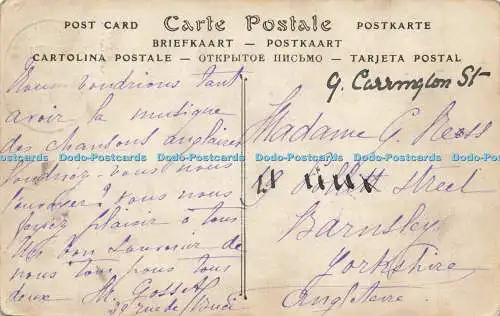 POST CARD Carte Postale POSTKARTE
BRIEFKAART — POSTKAART
CARTOLINA POSTALE — ОТКРЫТОЕ ПИСЬМО — TARJETA POSTAL
Nous voudrions tant
avoir la musique
des chansons anglaises
Voudriez-vous nous
l'envoyer? vous nous
ferez plaisir à tous
Un bon souvenir de
nous tous pour tous
deux M. Gosset
30 rue de
9. Carrington St
Madame G. Ress
Street
Barnsley
Yorkshire
Angleterre
Dodo-Postcards Dodo-Postcards Dodo-Postcards Dodo-Postcards Dodo-Postcards Dodo-Postcards Dodo-Postcards